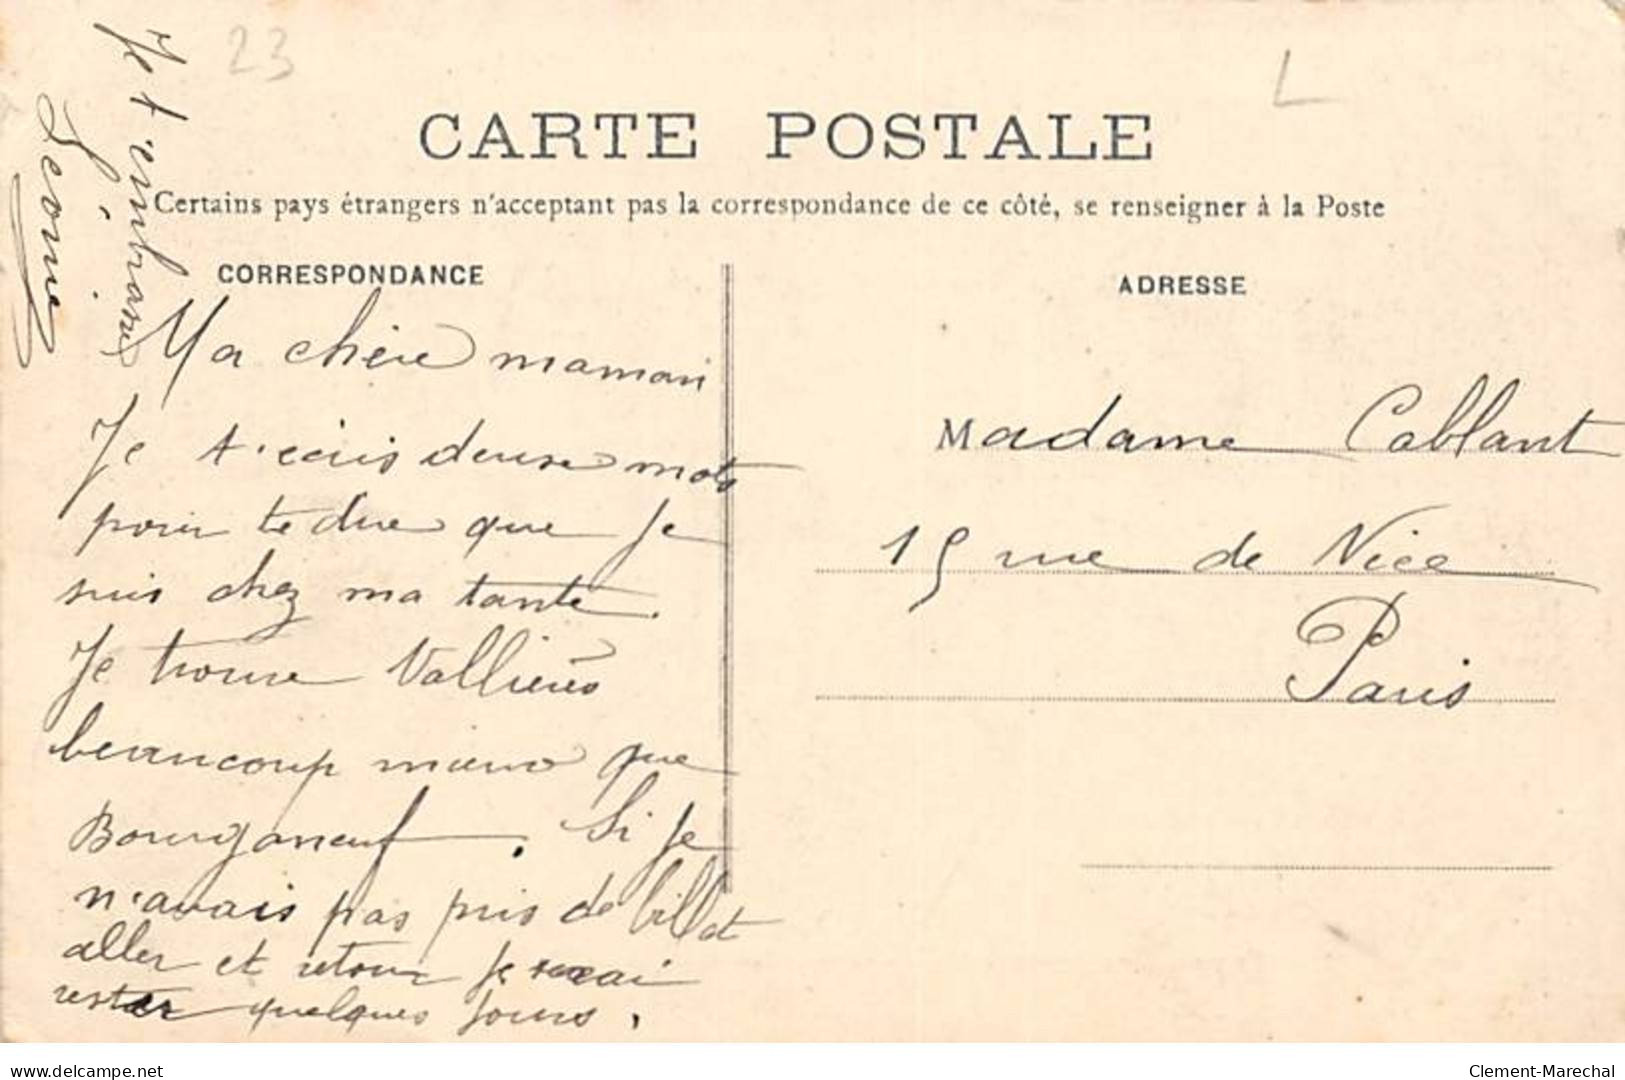 23
L
CARTE POSTALE
Certains pays étrangers n'acceptant pas la correspondance de ce côté, se renseigner à la Poste
CORRESPONDANCE
Ma chère maman
Je t'écris deux mots
pour te dire que je
suis chez ma tante.
Je trouve Vallières
beaucoup mieux que
Bourganeuf. Si je
n'avais pas pris de billet
aller et retour je serai
rester quelques jours.
Je t'embrasse
ADRESSE
Madame Cablant
15 rue de Nice
Paris
delcampe.net
Clement-Marechal